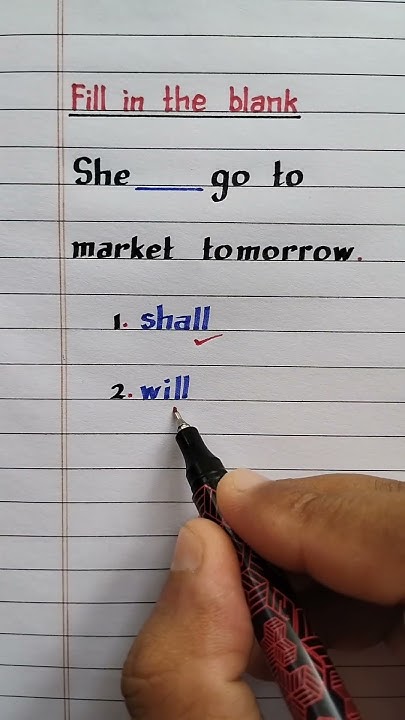 Fill in the blank
She ____ go to
market tomorrow.
1. shall
2. will